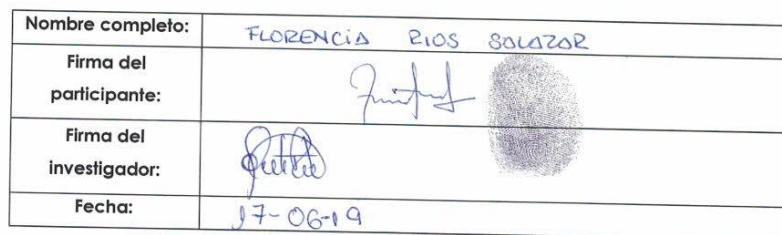 Nombre completo: FLORENCIA RIOS SALAZAR
Firma del
participante:
Firma del
investigador:
Fecha: 17-06-19